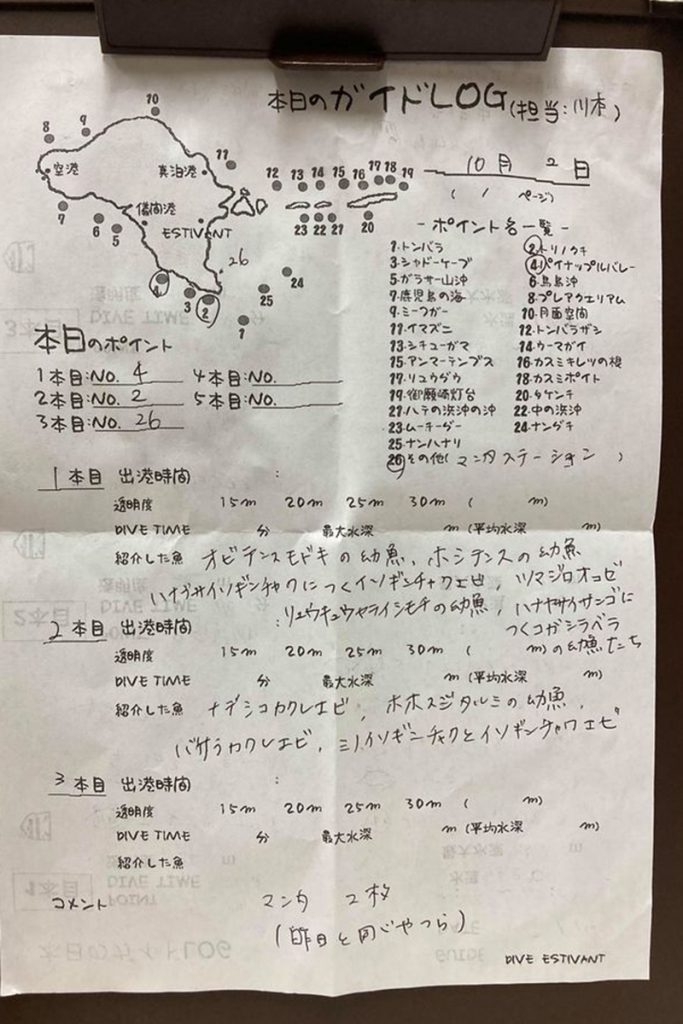 本日のガイドLOG(担当:川本)
10月 2日
( / ページ)
10
8 9
空港 真泊港 11
12 13 14 15 16 17 18 19
7 儀間港
6 5 ESTIVANT
23 22 21 20
26
24
4 3 2 25
1
-ポイント名一覧-
1.トンバラ 2.トリノクチ
3.シャドーケーブ 4.パイナップルバレー
5.ガラサー山沖 6.鳥島沖
7.鹿児島の海 8.プレアクエリアム
9.ミーフガー 10.月面空間
11.イマズニ 12.トンバラザシ
13.シチューガマ 14.ウーマガイ
15.アンマーテンブス 16.カスミキレツの根
17.リュウグウ 18.カスミポイト
19.御願崎灯台 20.タケンチ
21.ハテの浜沖の沖 22.中の浜沖
23.ムーチーダー 24.ナンダチ
25.ナンハナリ
26.その他(マンタステーション)
本日のポイント
1本目:NO. 4 4本目:NO.
2本目:NO. 2 5本目:NO.
3本目:NO. 26
1本目 出港時間 :
透明度 15m 20m 25m 30m ( m)
DIVE TIME 分 最大水深 m (平均水深 m)
紹介した魚 オビテンスモドキの幼魚、ホシテンスの幼魚
ハナブサイソギンチャクにつくイソギンチャクエビ、ツマジロオコゼ
リュウキュウヤライイシモチの幼魚、ハナヤサイサンゴに
つくコガシラベラ
の幼魚たち
2本目 出港時間 :
透明度 15m 20m 25m 30m ( m)
DIVE TIME 分 最大水深 m (平均水深 m)
紹介した魚 ナデシコカクレエビ、ホホスジタルミの幼魚、
バサラカクレエビ、ミノイソギンチャクとイソギンチャクエビ
3本目 出港時間 :
透明度 15m 20m 25m 30m ( m)
DIVE TIME 分 最大水深 m (平均水深 m)
紹介した魚
コメント マンタ 2枚
(昨日と同じやつら)
DIVE ESTIVANT